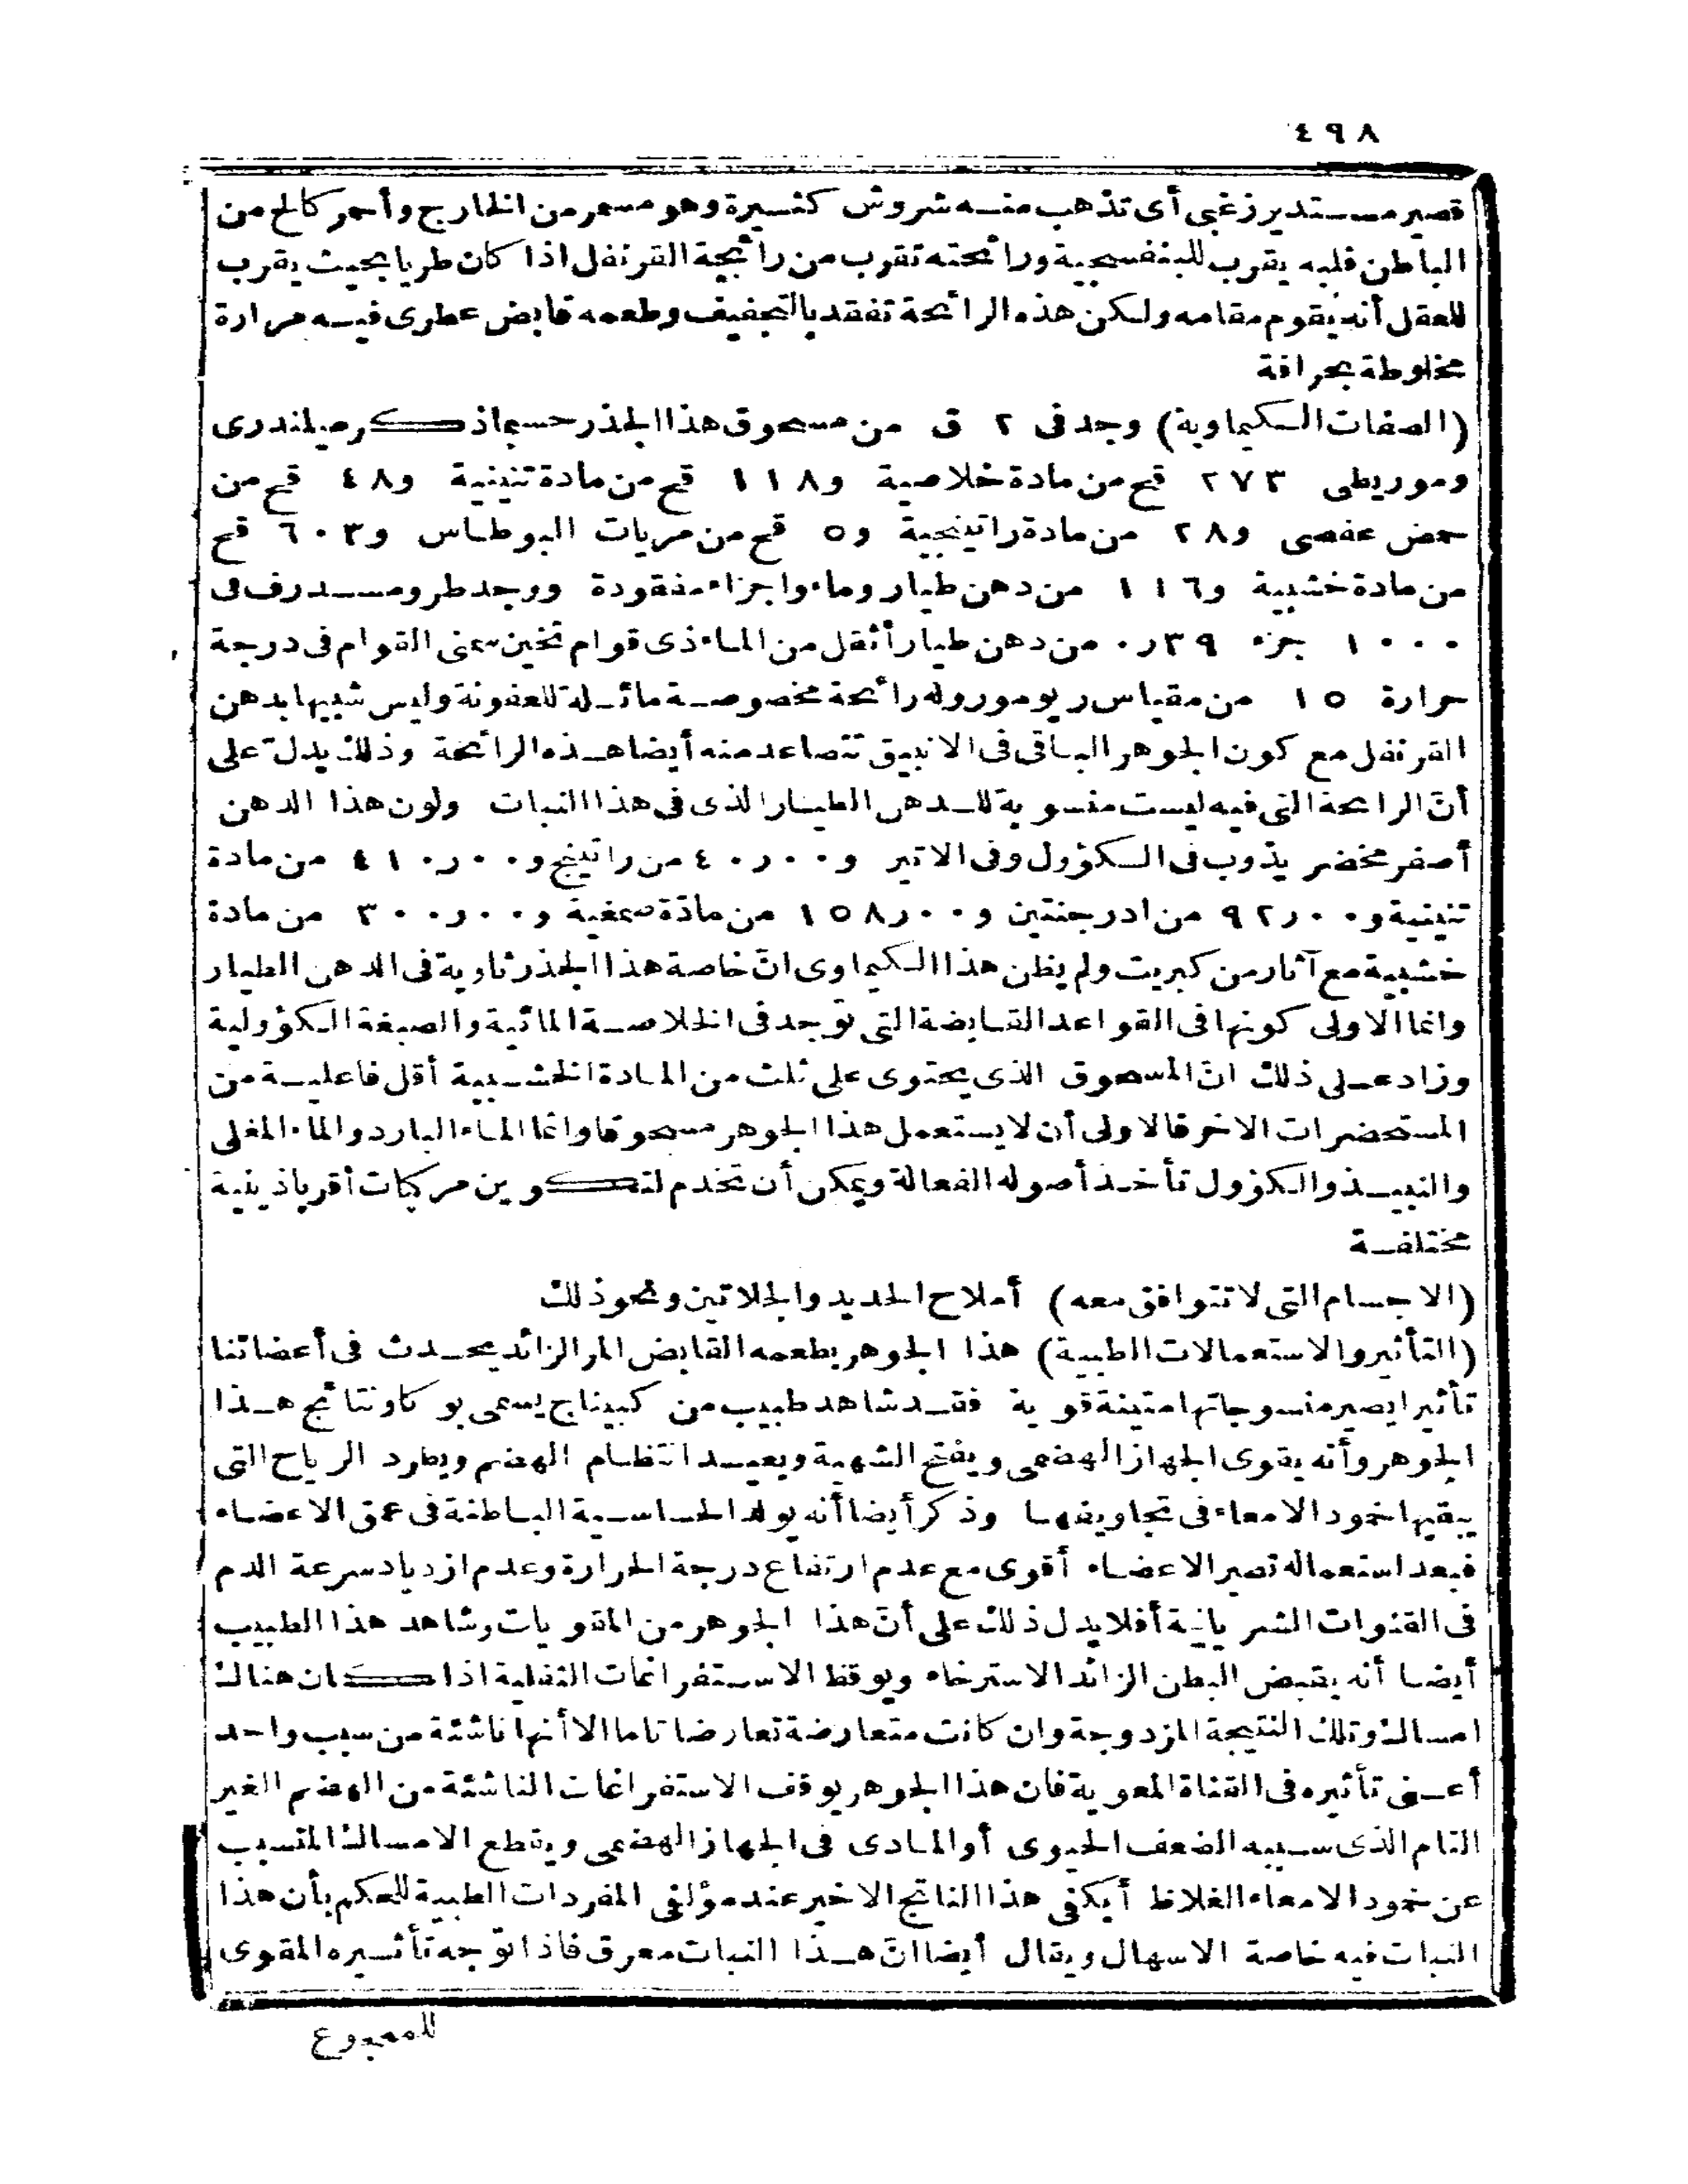 ٤٩٨
قصير مستدير زغبى أى تذهب منه شروش كثيرة وهو مسمر من الخارج وأحمر كالح من
الباطن قلبه يقرب للبنفسجية ورائحته تقرب من رائحة القرنفل اذا كان طريا بحيث يقرب
للعقل أنه يقوم مقامه ولكن هذه الرائحة تفقد بالتجفيف وطعمه قابض عطرى فيه مرارة
مخلوطة بحرافة
(الصفات الكيماوية) وجد فى ٢ ق من مسحوق هذا الجذر حسبما ذكر ميلندرى
وموريطى ٢٧٣ قح من مادة خلاصية و١١٨ قح من مادة تنينية و٤٨ قح من
حمض عفصى و٢٨ من مادة راتينجية و٥ قح من مريات البوطاس و٦٠٣ قح
من مادة خشبية و١١٦ من دهن طيار وماء واجزاء مفقودة ووجد طرومسدرف فى
١٠٠٠ جزء ٠ر٣٩ من دهن طيار أثقل من الماء ذى قوام ثخين سمنى القوام فى درجة
حرارة ١٥ من مقياس ريومور وله رائحة مخصوصة مائلة للعفونة وليس شبيها بدهن
القرنفل مع كون الجوهر الباقى فى الانبيق تتصاعد منه أيضا هذه الرائحة وذلك يدل على
أنّ الرائحة التى فيه ليست منسوبة للدهن الطيار الذى فى هذا النبات ولون هذا الدهن
أصفر مخضر يذوب فى الكؤول وفى الاتير و٤٠ر٠٠ من راتينج و٤١٠ر٠٠ من مادة
تنينية و٩٢ر٠٠ من ادرجنتين و١٥٨ر٠٠ من مادّة صمغية و٣٠٠ر٠٠ من مادة
خشبية مع آثار من كبريت ولم يظن هذا الكيماوى انّ خاصة هذا الجذر ثاوية فى الدهن الطيار
وانما الاولى كونها فى القواعد القابضة التى توجد فى الخلاصة المائية والصبغة الكؤولية
وزاد على ذلك انّ المسحوق الذى يحتوى على ثلث من المادة الخشبية أقل فاعلية من
المستحضرات الاخر فالاولى أن لا يستعمل هذا الجوهر مسحوقا وانما الماء البارد والماء المغلى
والنبيذ والكؤول تأخذ أصوله الفعالة ويمكن أن تخدم لتكوين مركبات أقرباذينية
مختلفة
(الاجسام التى لا تتوافق معه) أملاح الحديد والجلاتين ونحو ذلك
(التأثير والاستعمالات الطبية) هذا الجوهر بطعمه القابض المر الزائد يحدث فى أعضائنا
تأثيرا يصير منسوجاتها متينة قوية فقد شاهد طبيب من كبيناج يسمى بوكاو نتائج هذا
الجوهر وأنه يقوى الجهاز الهضمى ويفتح الشهية ويعيد انتظام الهضم ويطرد الرياح التى
يبقيها خمود الامعاء فى تجاويفها وذكر أيضا أنه يولد الحساسية الباطنة فى عمق الاعضاء
فبعد استعماله تصير الاعضاء أقوى مع عدم ارتفاع درجة الحرارة وعدم ازدياد سرعة الدم
فى القنوات الشريانية أفلا يدل ذلك على أنّ هذا الجوهر من المقويات وشاهد هذا الطبيب
أيضا أنه يقبض البطن الزائد الاسترخاء ويوقظ الاستفراغات الثفلية اذا كان هناك
امساك وتلك النتيجة المزدوجة وان كانت متعارضة تعارضا تاما الا أنها ناشئة من سبب واحد
أعنى تأثيره فى القناة المعوية فان هذا الجوهر يوقف الاستفراغات الناشئة من الهضم الغير
التام الذى سببه الضعف الحيوى أو المادى فى الجهاز الهضمى ويقطع الامساك المتسبب
عن خمود الامعاء الغلاظ أيكفى هذا الناتج الاخير عند مؤلفى المفردات الطبية للحكم بأن هذا
النبات فيه خاصة الاسهال ويقال أيضا انّ هذا النبات معرق فاذا توجه تأثيره المقوى
للمجموع